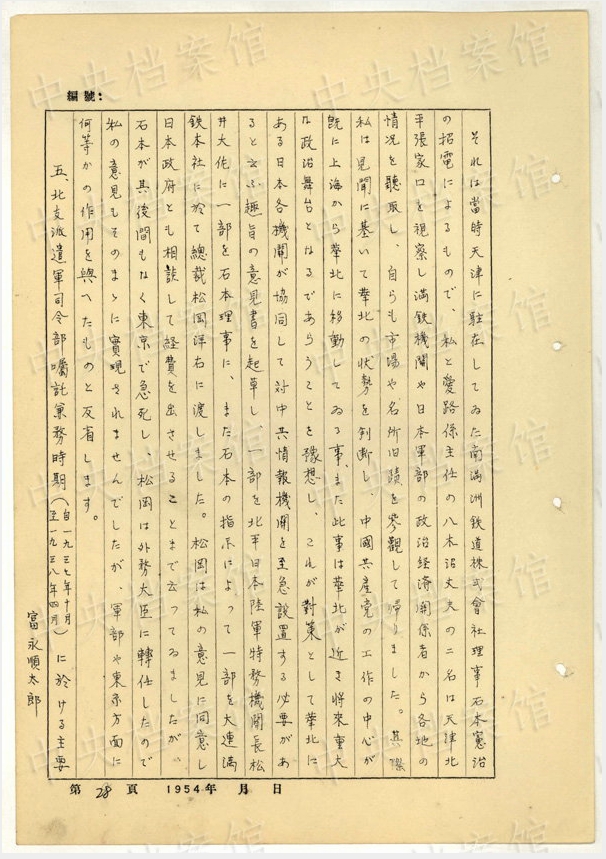 編號:
それは當時天津に駐在してゐた南滿洲鉄道株式會社理事石本憲治
の招電によるもので、私と愛路係主任の八木沼丈夫の二名は天津北
平張家口を視察し満鉄機關や日本軍部の政治経済関係者から各地の
情况を聽取し、自らも市場や名所旧蹟を参觀して帰りました。其際
私は見聞に基いて華北の状勢を判断し、中國共産党の工作の中心が
既に上海から華北に移動してゐる事、また此事は華北が近き將來重大
な政治舞台となるであらうことを豫想し、これが對策として華北に
ある日本各機關が協同して対中共情報機関を至急設置する必要があ
ると云ふ趣旨の意見書を起草し、一部を北平日本陸軍特務機関長松
井大佐に一部を石本理事に、また石本の指示によって一部を大連満
鉄本社に於て總裁松岡洋右に渡しました。松岡は私の意見に同意し
日本政府とも相談して経費を出させることまで云ってゐましたが、
石本が其後間もなく東京で急死し、松岡は外務大臣に轉任したので
私の意見もそのまゝに實現されませんでしたが、軍部や東京方面に
何等かの作用を與へたものと反省します。
五、北支派遣軍司令部囑託兼務時期(自一九三七年十月至一九三八年四月)に於ける主要
富永順太郎
第 28 頁 1954年 月 日
中央档案馆